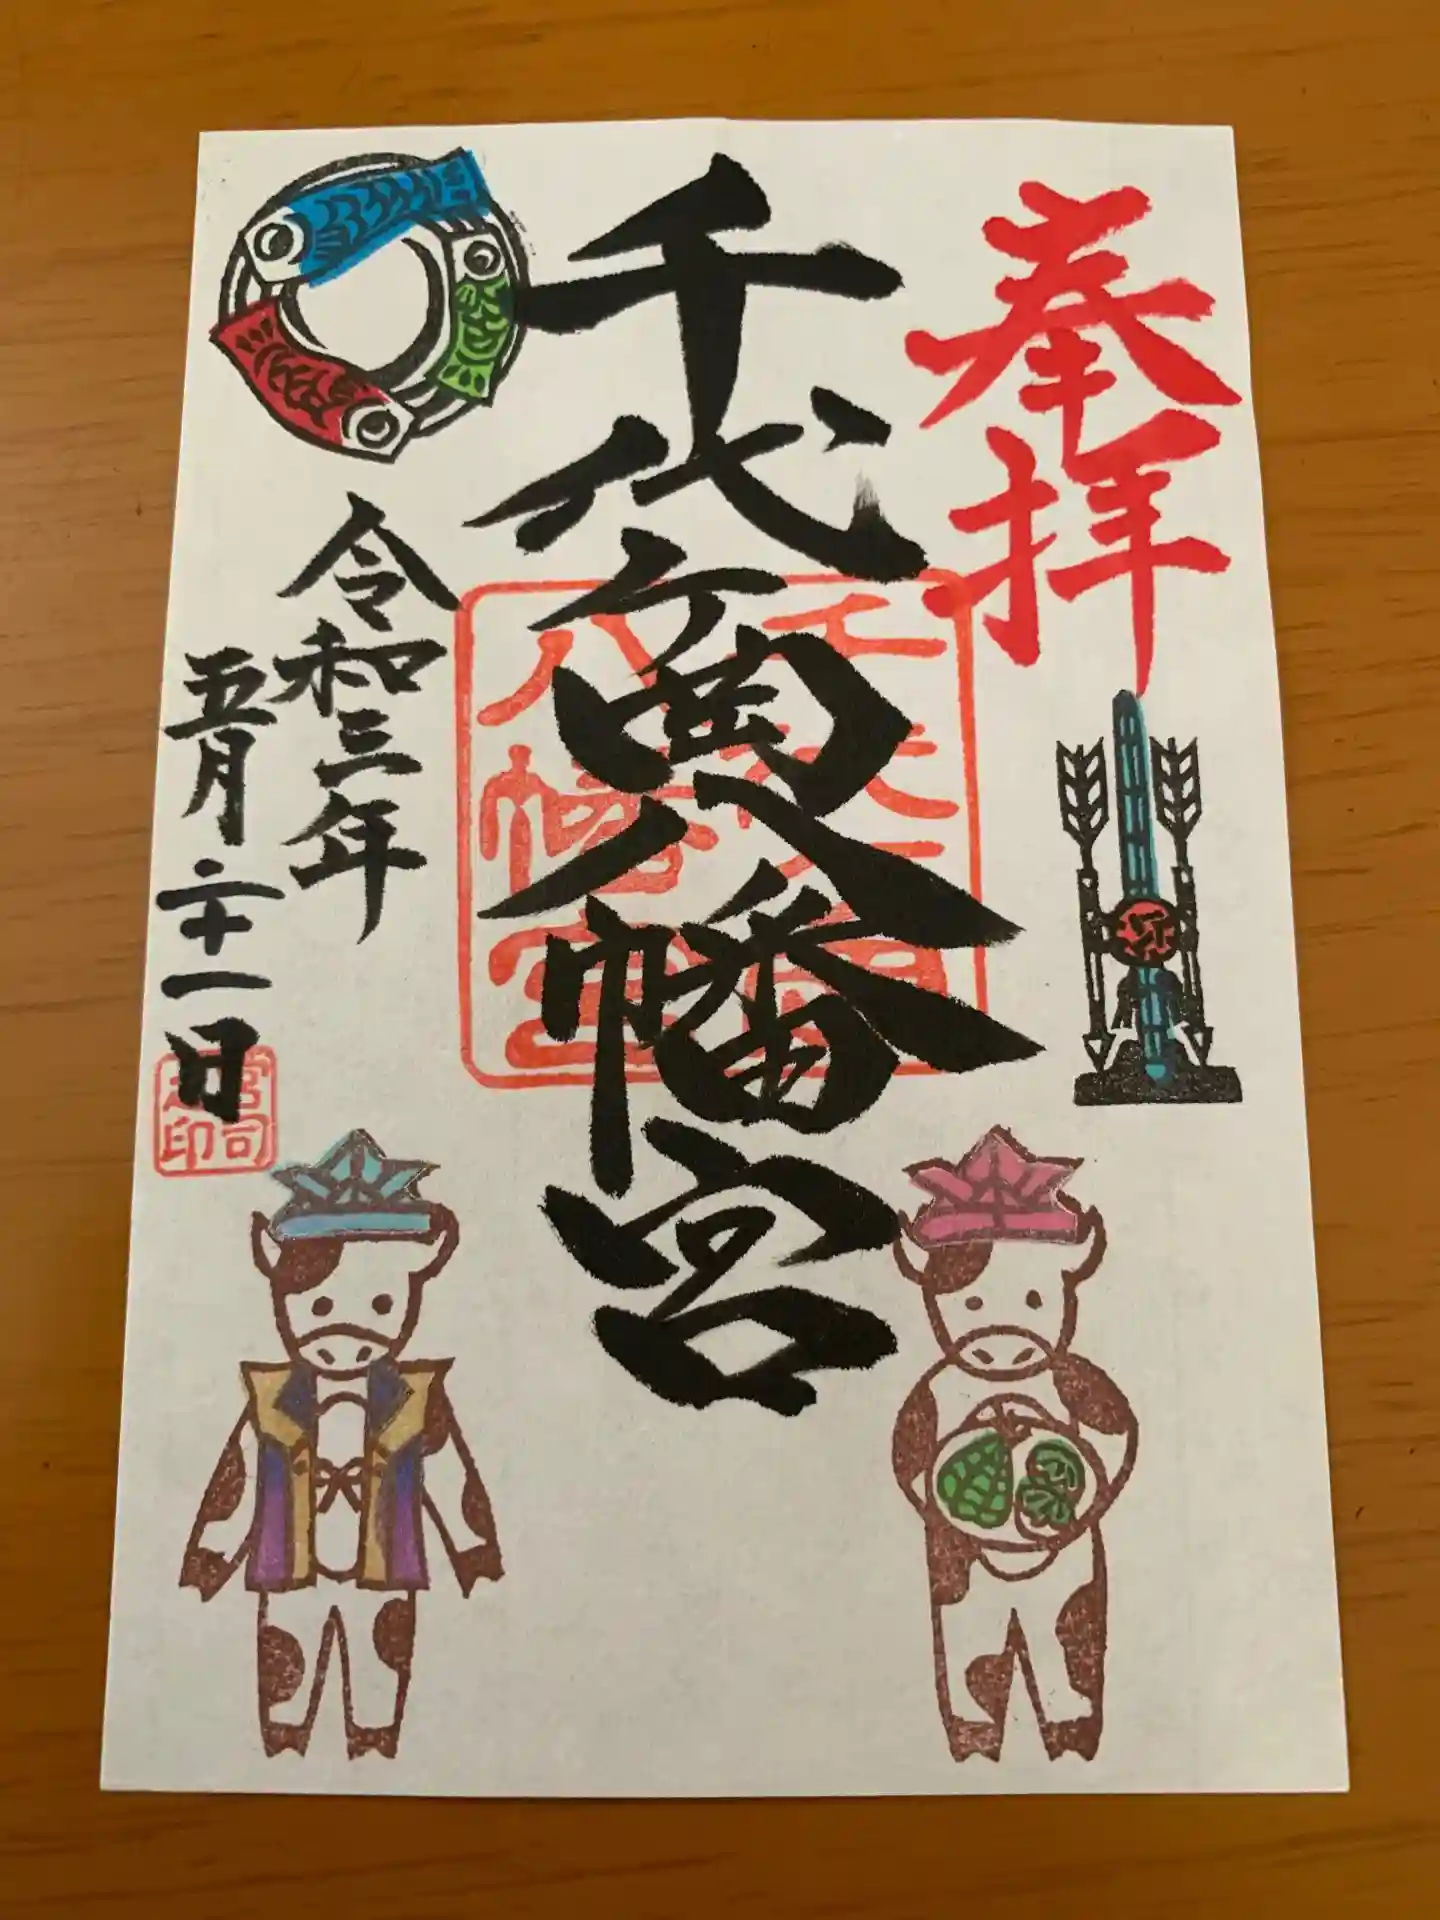 奉拝
千代ヶ岡八幡宮
八幡宮
令和三年
五月二十一日
宮司之印